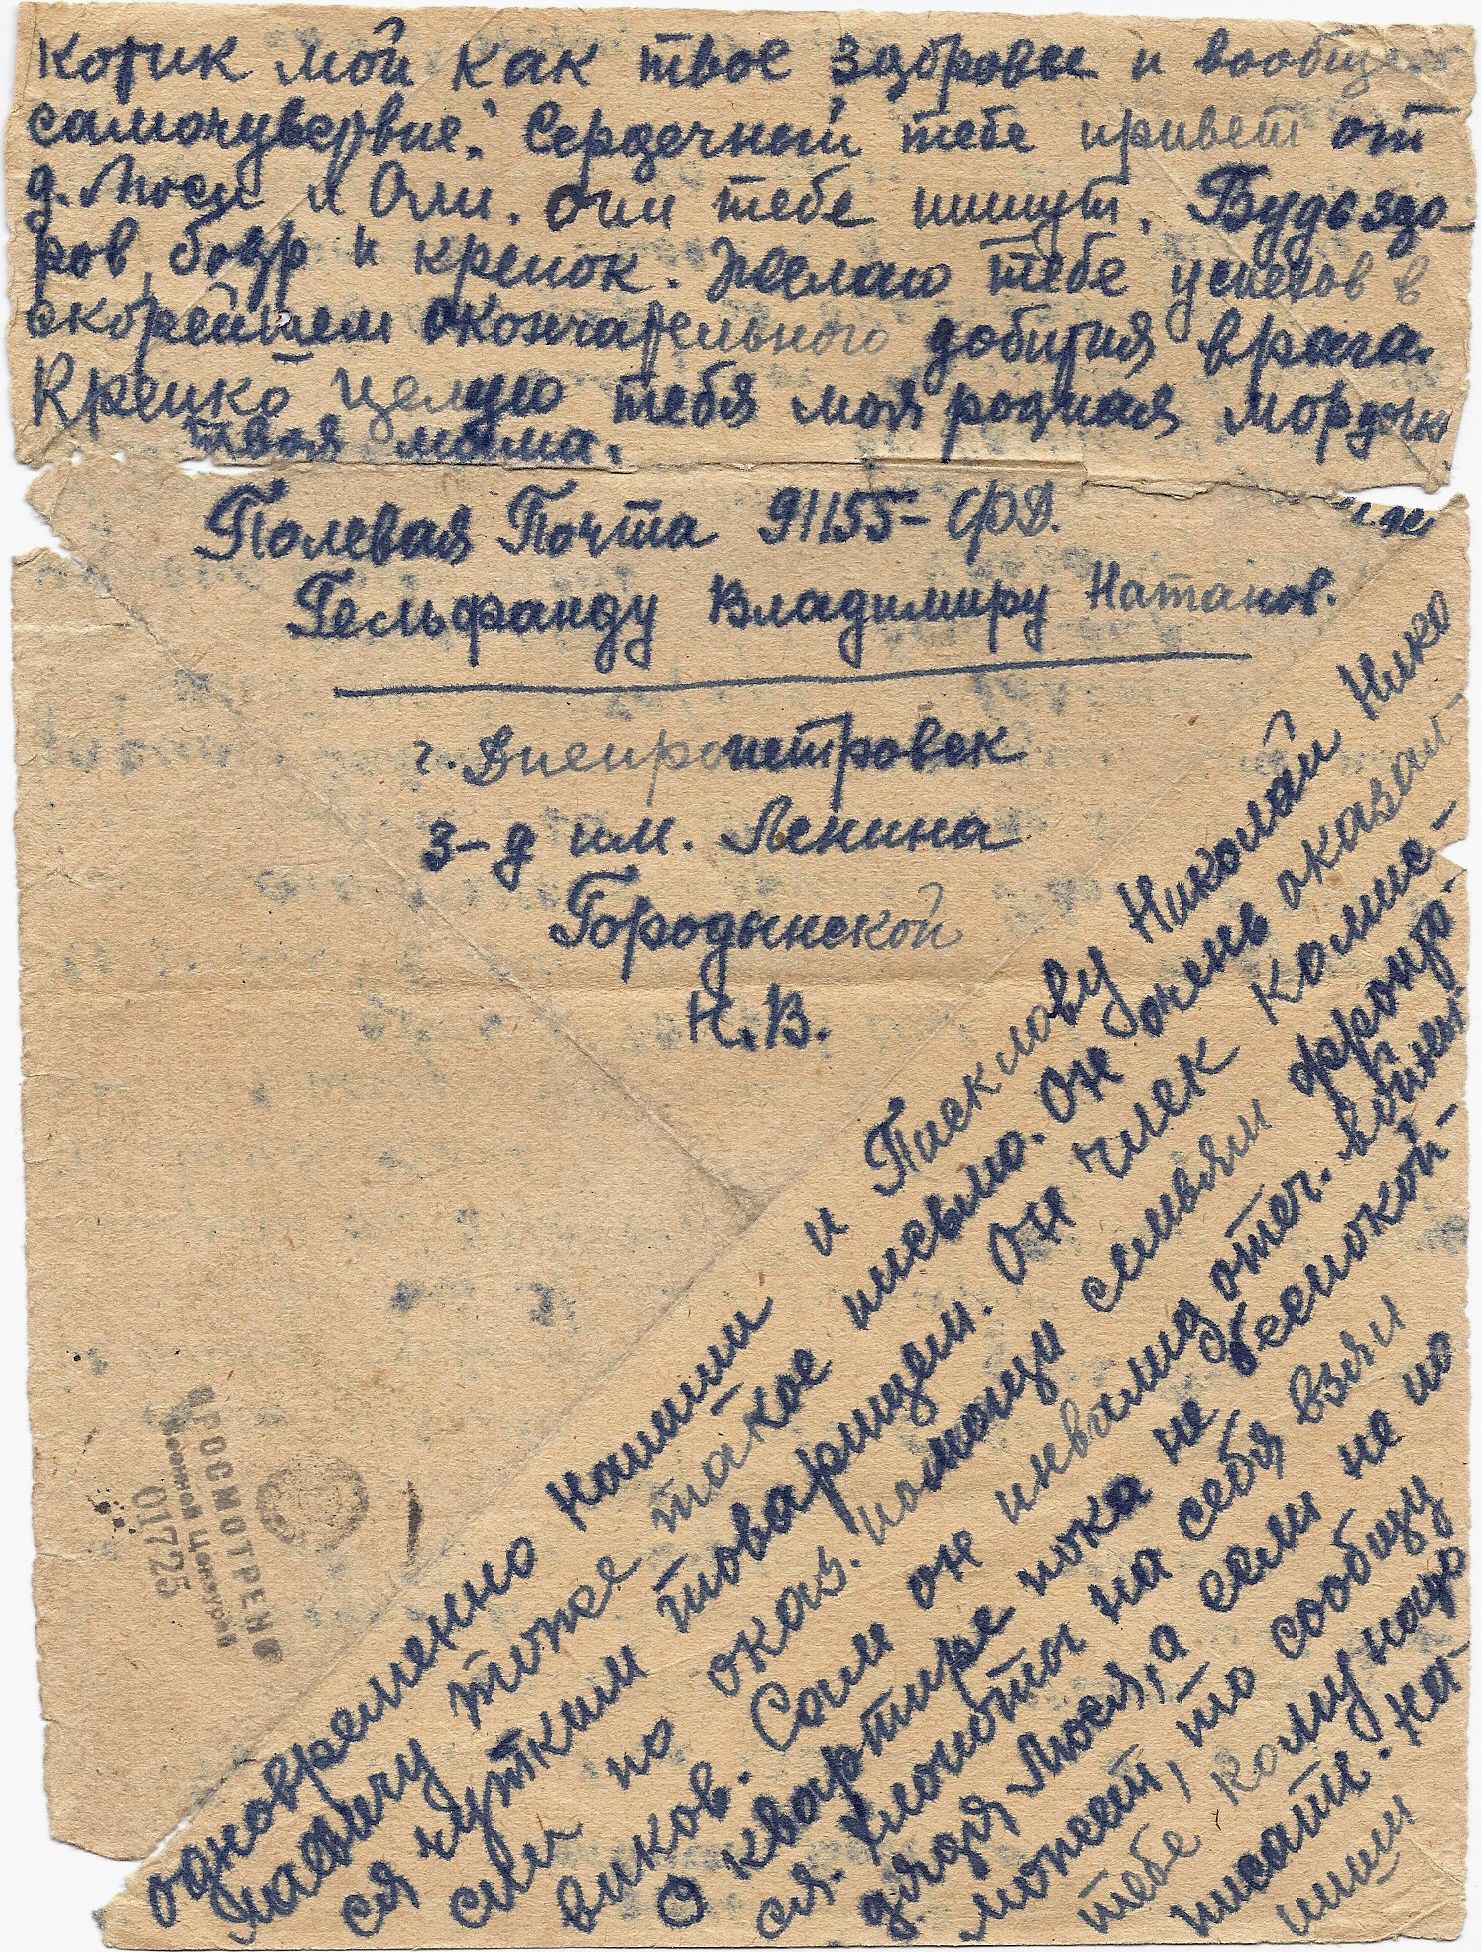 Котик мой как твое здоровье и вообще
самочувствие. Сердечный тебе привет от
д. Люси и Оли. Они тебе пишут. Будь здо-
ров, бодр и крепок. Желаю тебе успехов в
скорейшем окончательного добития врага.
Крепко целую тебя моя родная мордочка
твоя мама.
Полевая Почта 91155-
Гельфанду Владимиру Натанов.
г. Днепропетровск
з-д им. Ленина
Городынской
Н.В.
одновременно напиши и Писклову Николай Нико
лаевичу тоже такое письмо. Он очень оказал-
ся чутким товарищем. Он член комис-
сии по оказ. помощи семьям фронто-
виков. Сам он инвалид отеч. войны
О квартире пока не беспокой-
ся. Хлопоты на себя взял
дядя Люся, а если не по
может, то сообщу
тебе кому надо
писать. На-
пиши
ПРОСМОТРЕНО
Военной Цензурой
01725